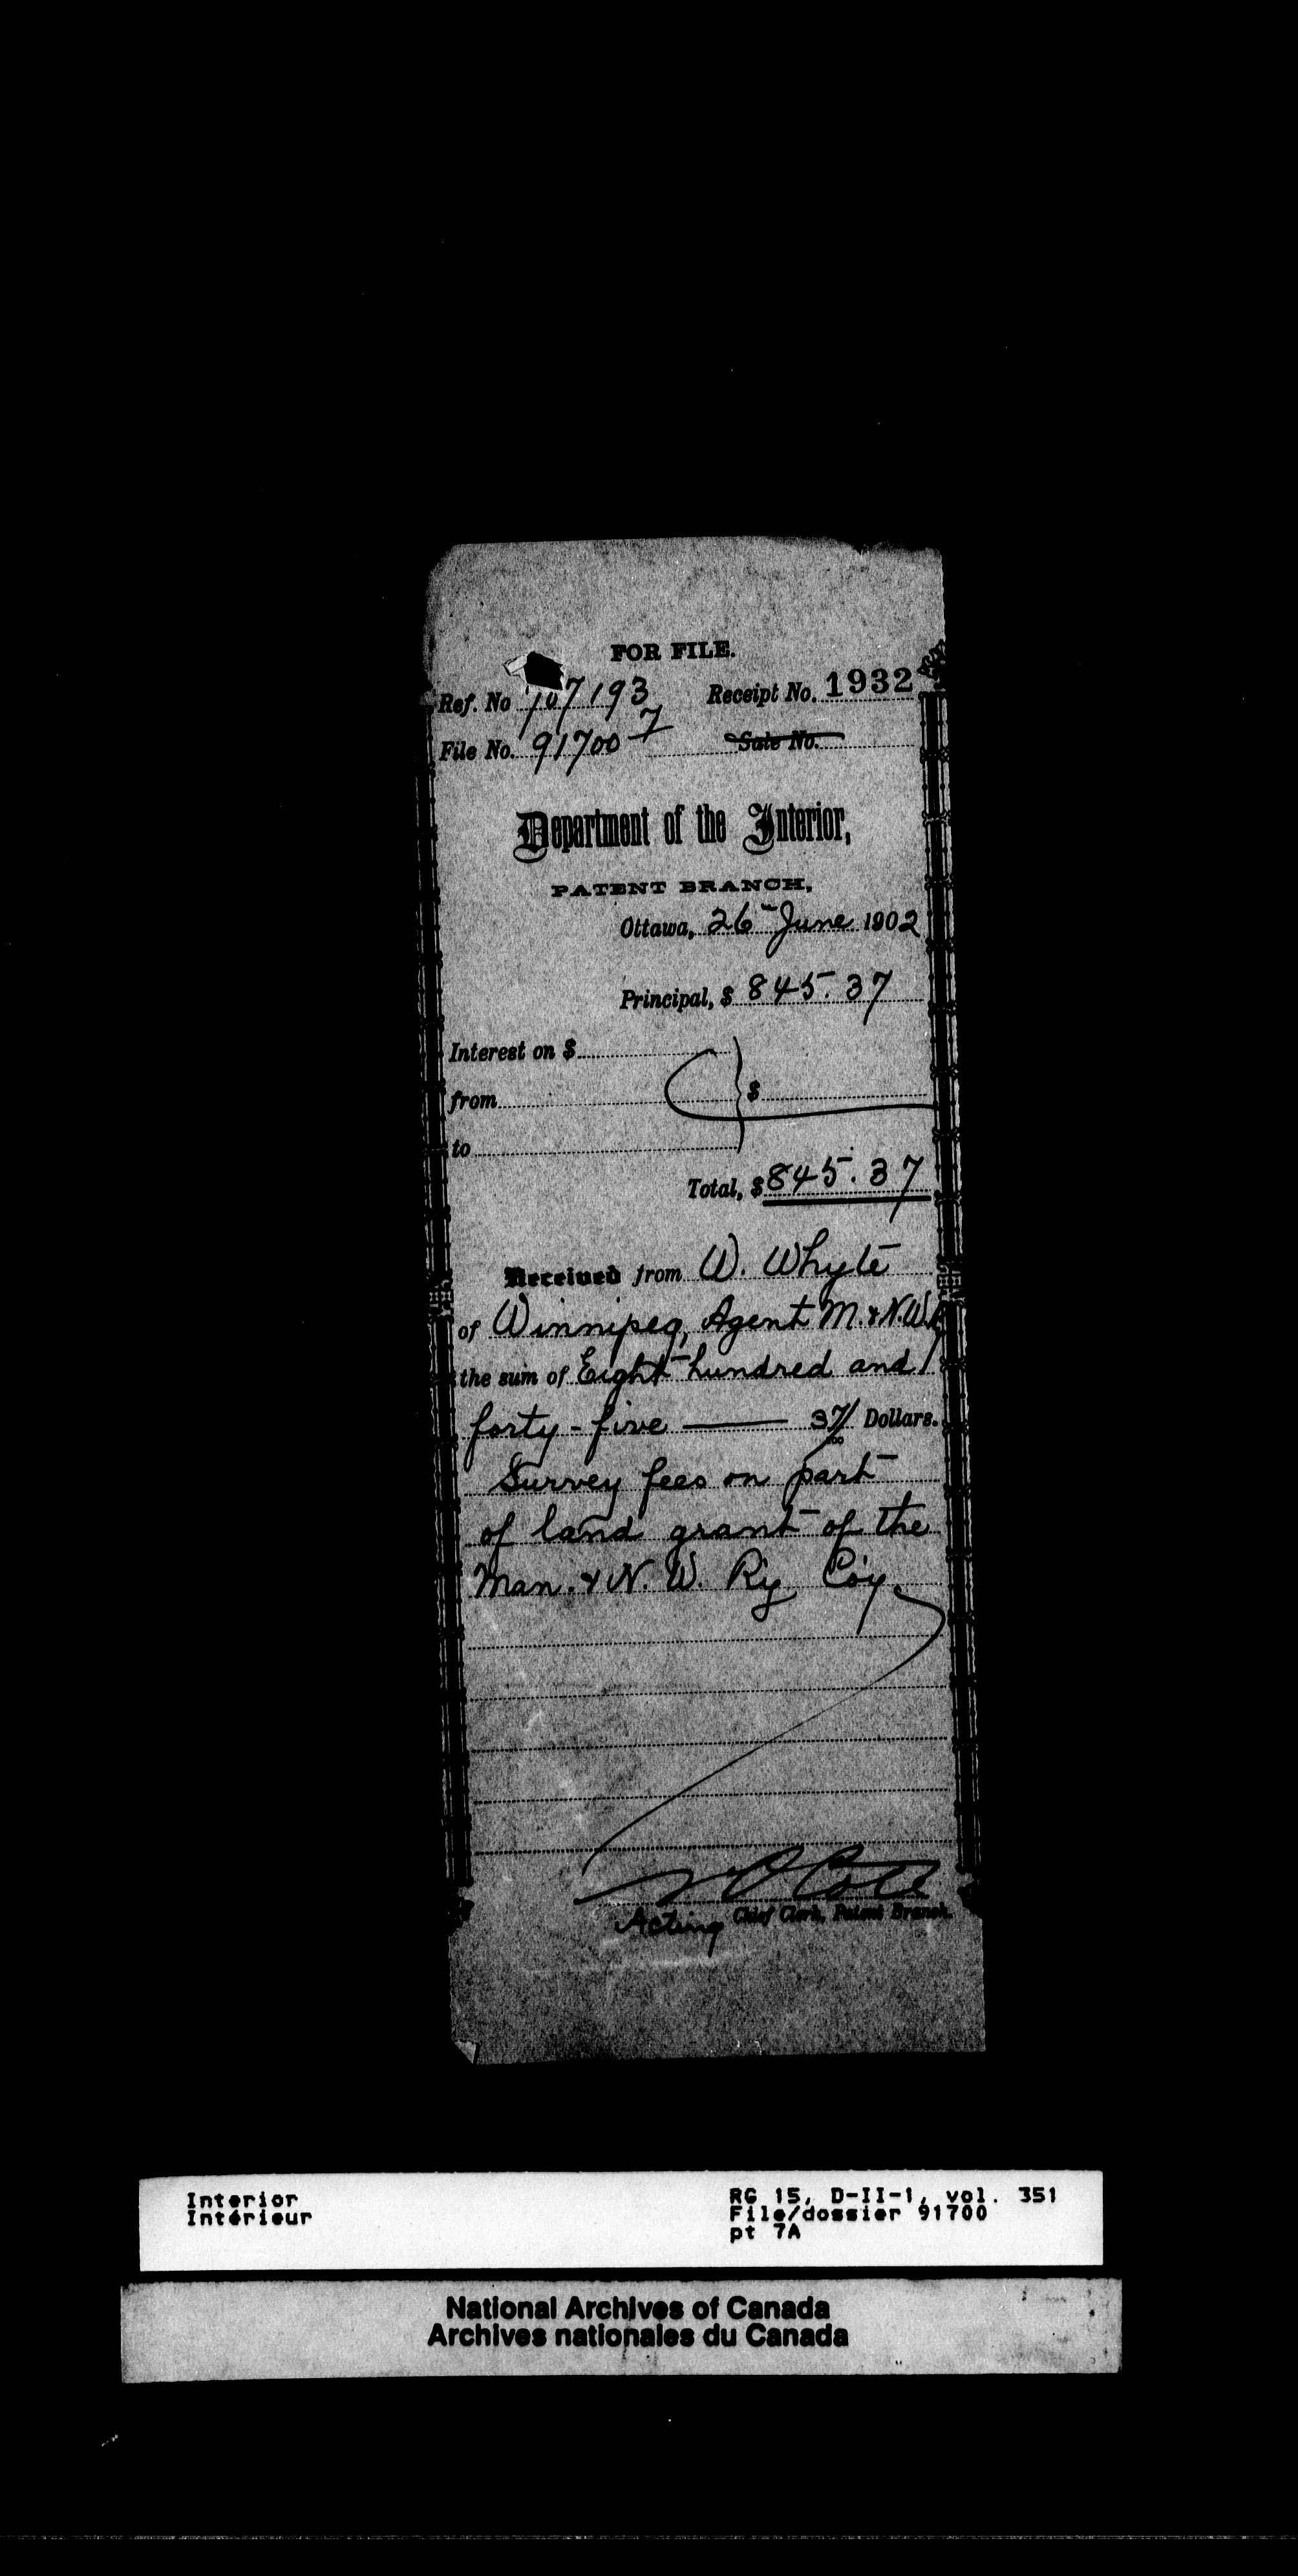 FOR FILE.
Ref. No 107193 Receipt No. 1932
File No. 91700 7 Sale No.
Department of the Interior,
PATENT BRANCH,
Ottawa, 26th June 1902
Principal, $ 845.37
Interest on $
from $
to
Total, $ 845.37
Received from W. Whyte
of Winnipeg, Agent M. & N.W.R
the sum of Eight hundred and
forty-five — 37/100 Dollars.
Survey fees on part
of land grant of the
Man. & N. W. Ry. Co'y.
Cote
Acting Chief Clerk, Patent Branch.
Interior RG 15, D-II-1, vol. 351
Intérieur File/dossier 91700
pt 7A
National Archives of Canada
Archives nationales du Canada